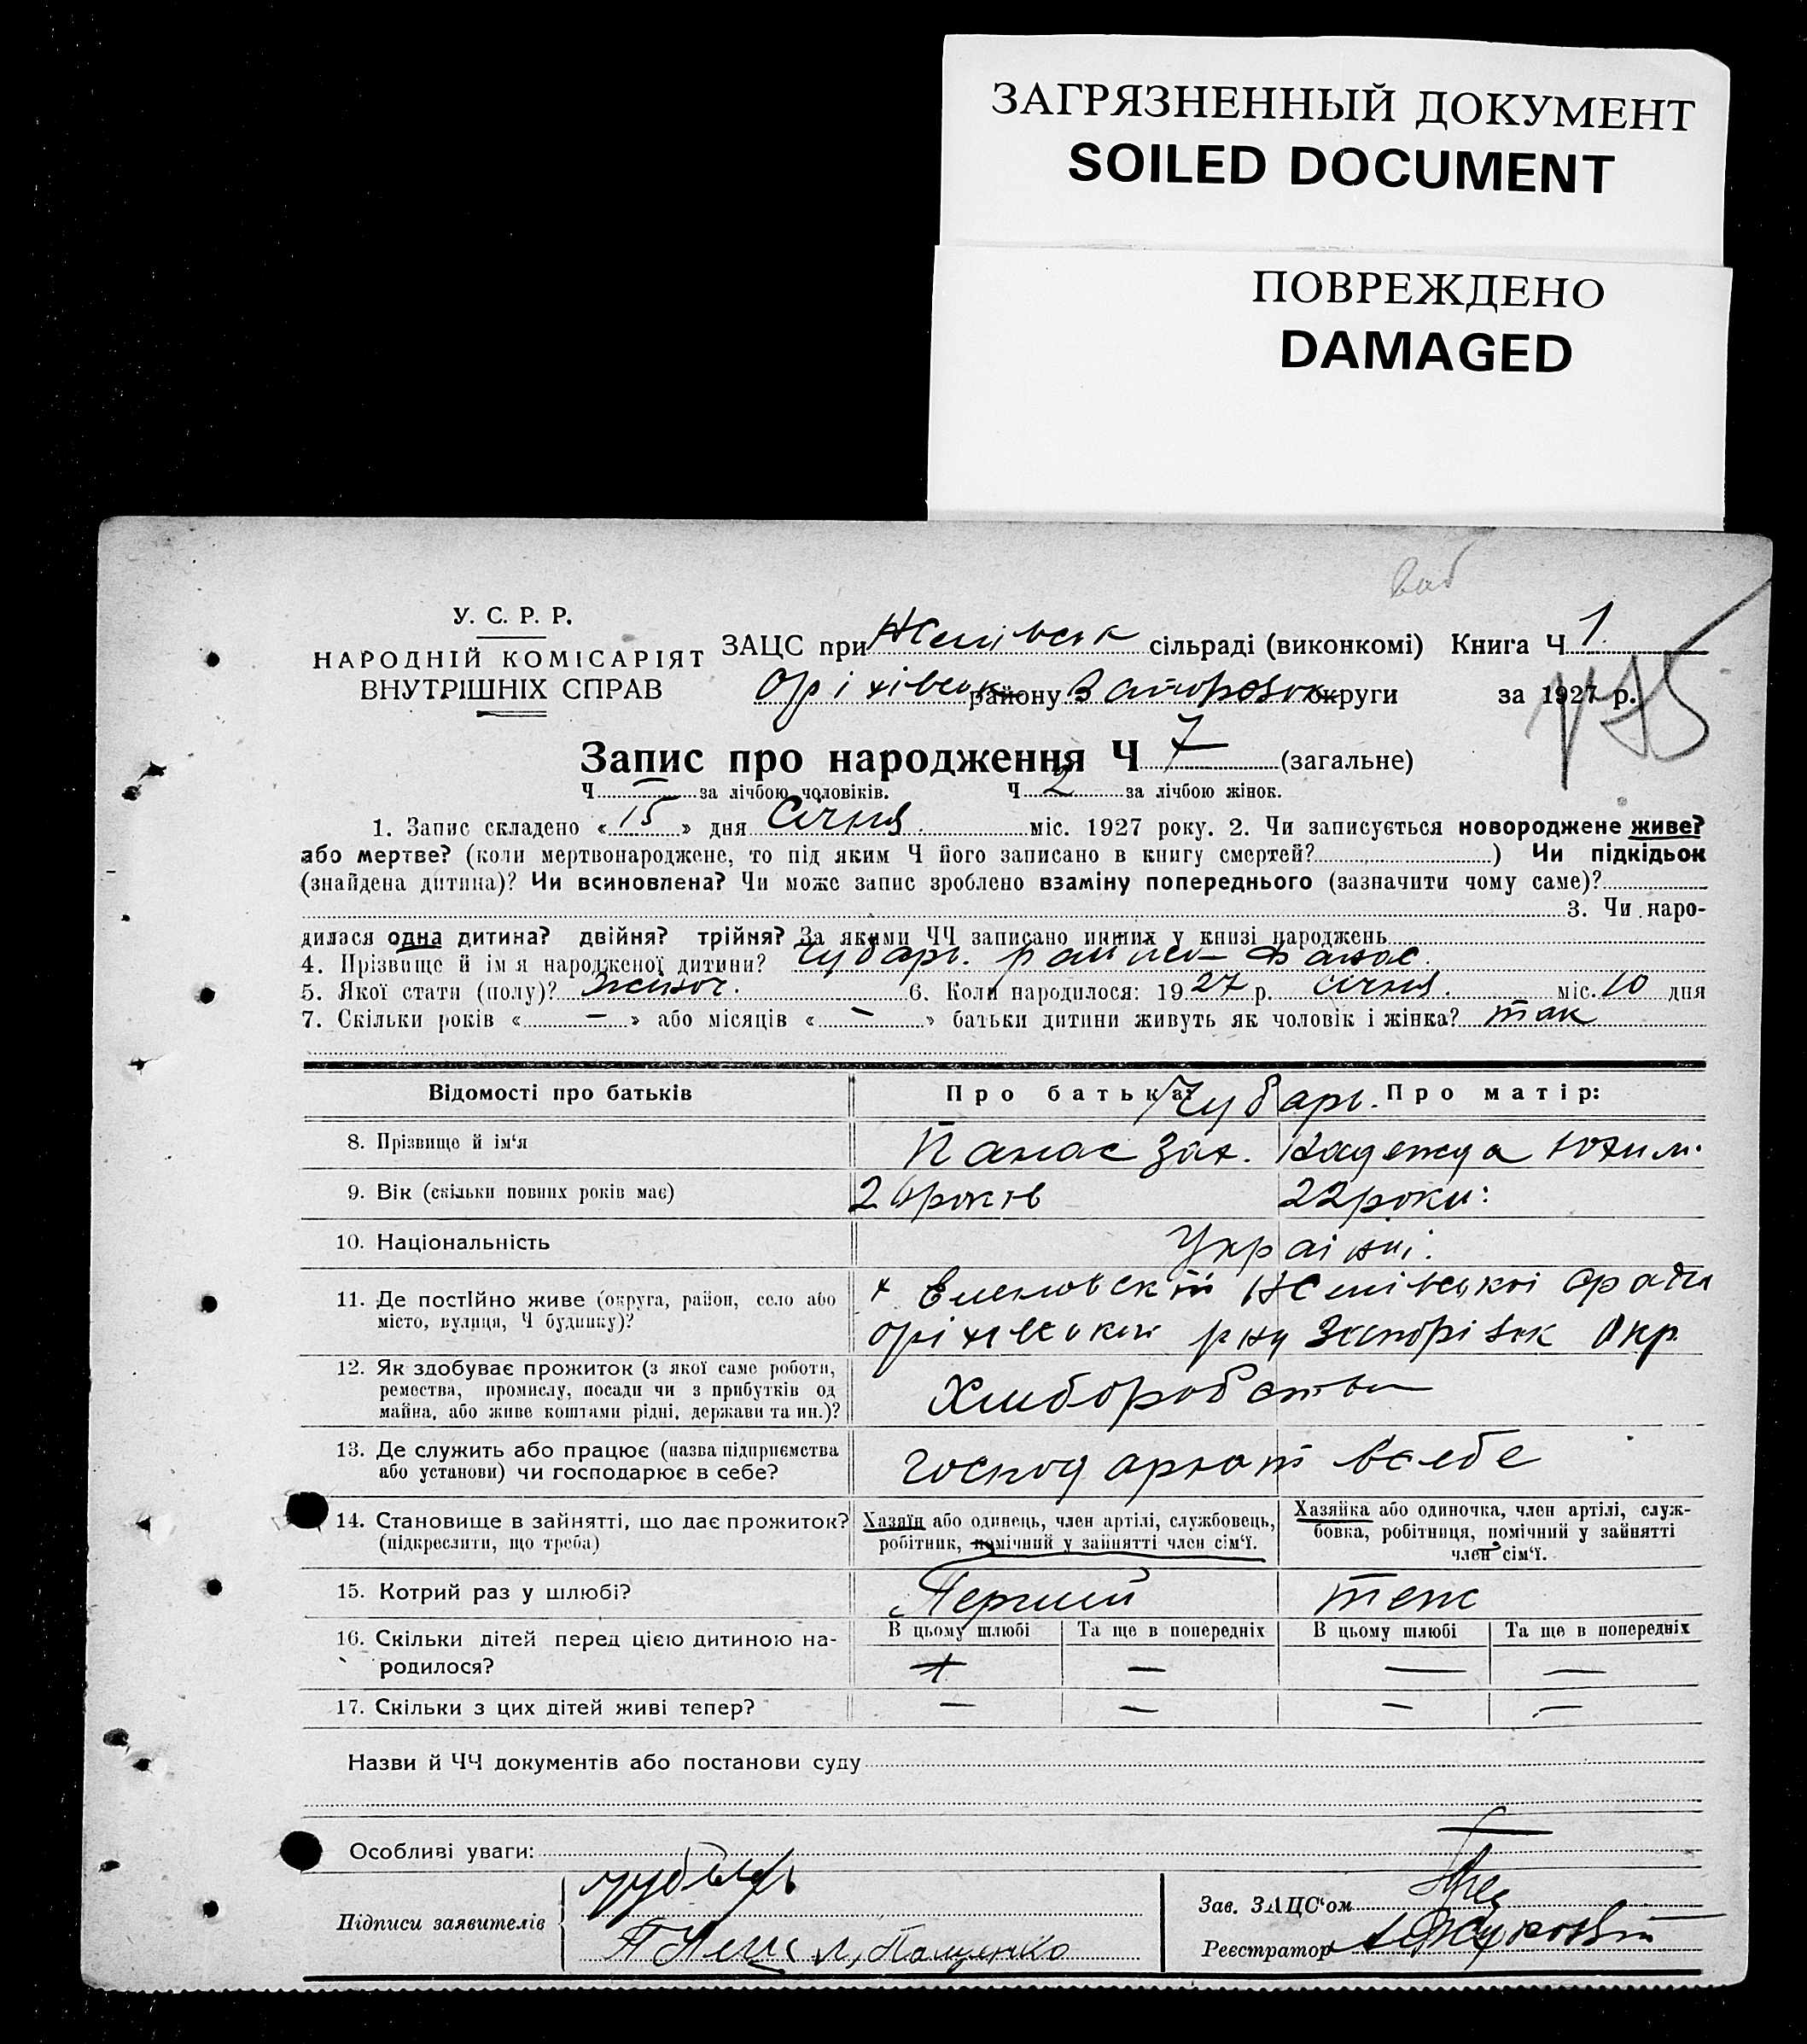 ЗАГРЯЗНЕННЫЙ ДОКУМЕНТ
SOILED DOCUMENT
ПОВРЕЖДЕНО
DAMAGED
У. С. Р. Р.
НАРОДНІЙ КОМІСАРІЯТ
ВНУТРІШНІХ СПРАВ
ЗАЦС при сільраді (виконкомі) Книга Ч 1
Оріхівськ району Запорізьк округи за 1927 р.
Запис про народження Ч 7 (загальне)
Ч — за лічбою чоловіків. Ч 2 за лічбою жінок.
1. Запис складено « 15 » дня Січня міс. 1927 року. 2. Чи записується новороджене живе?
або мертве? (коли мертвонароджене, то під яким Ч його записано в книгу смертей? ) Чи підкідьок
(знайдена дитина)? Чи всиновлена? Чи може запис зроблено взаміну попереднього (зазначити чому саме)?
3. Чи наро-
дилася одна дитина? двійня? трійня? За якими ЧЧ записано инших у книзі народжень
4. Прізвище й ім'я народженої дитини? Чубарь.
5. Якої стати (полу)? Жіноч. 6. Коли народилося: 1927 р. січня. міс. 10 дня
7. Скільки років « — » або місяців « — » батьки дитини живуть як чоловік і жінка? так
Відомості про батьків Про батька: Чубарь. Про матір:
8. Прізвище й ім'я Панас Зах. Надежда Юхим.
9. Вік (скільки повних років має) 26 років 22 роки:
10. Національність Україні.
11. Де постійно живе (округа, район, село або
місто, вулиця, Ч будинку)?
12. Як здобуває прожиток (з якої саме роботи,
ремества, промислу, посади чи з прибутків од
майна, або живе коштами рідні, держави та ин.)?
Хліборобства
13. Де служить або працює (назва підприємства
або установи) чи господарює в себе?
господарюют в себе
14. Становище в зайнятті, що дає прожиток?
(підкреслити, що треба)
Хазяїн або одинець, член артілі, службовець,
робітник, помічний у зайнятті член сім'ї.
Хазяйка або одиночка, член артілі, служ-
бовка, робітниця, помічний у зайнятті
член сім'ї.
15. Котрий раз у шлюбі? Перший теж
16. Скільки дітей перед цією дитиною на-
родилося?
В цьому шлюбі Та ще в попередніх В цьому шлюбі Та ще в попередніх
— — —
17. Скільки з цих дітей живі тепер? — — — —
Назви й ЧЧ документів або постанови суду
Особливі уваги:
Підписи заявителів Чубарь
Пащенко
Зав. ЗАЦС'ом
Реєстратор